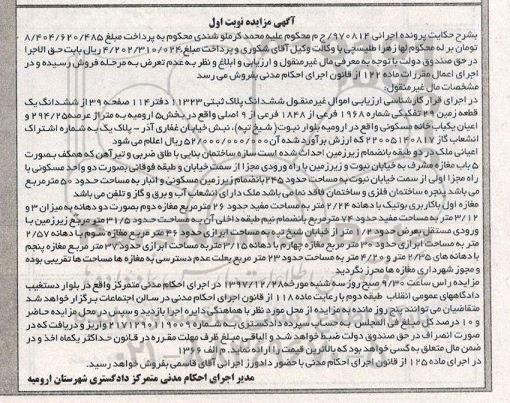 آگهی مزایده نوبت اول
بشرح حکایت پرونده اجرائی ۹۷۰۸۱۴/ ج م محکوم علیه محمد کرملو شندی محکوم به پرداخت مبلغ ۸/۴۰۴/۶۲۰/۴۸۵
تومان بر له محکوم لها زهرا طلبسچی با وکالت وکیل آقای شکوری و پرداخت مبلغ ۴/۲۰۲/۳۱۰/۰۲۴ ریال بابت حق الاجرا
در حق صندوق دولت با توجه به معرفی مال غیرمنقول و ارزیابی و ابلاغ و نظر به عدم تعرض به مرحله فروش رسیده و در
اجرای اعمال مقررات ماده ۱۲۲ از قانون اجرای احکام مدنی بفروش می رسد
مشخصات مال غیرمنقول:
در اجرای قرار کارشناسی ارزیابی اموال غیرمنقول ششدانگ پلاک ثبتی ۱۱۳۲۳ دفتر ۱۱۴ صفحه ۳۹ از ششدانگ یک
قطعه زمین ۲۹ تفکیکی شماره ۱۹۶۸ فرعی از ۱۸۴۸ فرعی از ۹ اصلی واقع در بخش ۵ ارومیه به متراژ عرصه ۲۹۴/۲۵ و
اعیان یکباب خانه مسکونی واقع در ارومیه بلوار نبوت (شیخ تپه)، نبش خیابان غفاری آذر - پلاک یک به شماره اشتراک
انشعاب گاز ۲۰۰۵۱۴۰۸۱۷ که ارزش برآورد شده آن ۵۲/۰۰۰/۰۰۰/۰۰۰ ریال اعلام می شود
اعیانی ملک در دو طبقه بانضمام زیرزمین احداث شده است سازه ساختمان بنایی با طاق ضربی و تیرآهن که همکف بصورت
۵ باب مغازه مشرف به خیابان نبوت و زیرزمین با راه ورودی مجزا از سمت خیابان و طبقه فوقانی بصورت دو واحد مسکونی با
راه مجزا اولی از سمت خیابان نبوت به مساحت حدود ۲۴۵ بانضمام زیرزمین مسکونی و انبار به مساحت حدود ۵۰ مترمربع
می باشد پنجره ساختمان فلزی و ساختمان فاقد نما می باشد ملک دارای انشعاب آب و برق و گاز و تلفن می باشد
مغازه اول با کاربری بوتیک با دهانه ۲/۲۴ متر به مساحت مفید حدود ۲۶ مترمربع مغازه دوم بصورت دو دهانه به میزان ۳ و
۳/۱۲ متر به مساحت مفید حدود ۷۴ مترمربع بانضمام نیم طبقه داخلی آن به مساحت حدود ۳۱/۵ مترمربع زیرزمین با
ورودی مستقل بعرض حدود ۱/۲ متر از خیابان شیخ تپه به مساحت ابرازی حدود ۴۶ مترمربع مغازه سوم با دهانه ۲/۵۷
متر به مساحت ابرازی حدود ۳۰ مترمربع مغازه چهارم با دهانه ۳/۱۵ متر به مساحت ابرازی حدود ۳۷ مترمربع مغازه پنجم
با دهانه های ۲/۳۵ متر و ۴/۲۰ متر به مساحت حدود ۲۳ مترمربع بعلت عدم دسترسی به مغازه ها مساحت ها تقریبی بوده
و مجوز شهرداری مغازه ها محرز نگردید
مزایده راس ساعت ۹/۳۰ صبح روز سه شنبه مورخه ۱۳۹۷/۱۲/۲۸ در اجرای احکام مدنی متمرکز واقع در بلوار دستغیب
دادگاههای عمومی انقلاب طبقه دوم با رعایت ماده ۱۱۸ از قانون اجرای احکام مدنی در سالن اجتماعات برگزار خواهد شد
متقاضیان می توانند پنج روز مانده به مزایده از محل مورد نظر با هماهنگی دایره اجرا بازدید و سپس در محل مزایده حاضر
و ۱۰ درصد کل مبلغ فی المجلس به حساب سپرده دادگستری به شماره ۲۱۷۱۲۹۰۱۱۹۰۰۹ واریز و دریافت که در
صورت انصراف در حق صندوق دولت ضبط خواهد شد و الباقی مبلغ ظرف مهلت مقرره در قانون حداکثر یکماه اخذ و در
ضمن مال متعلق به کسی خواهد بود که بالاترین قیمت را ارائه نماید. م الف ۱۳۶۶
در اجرای ماده ۱۲۵ از قانون اجرای احکام مدنی با حضور دادورز اجرائی آقای قاسمی بفروش خواهد رسید.
مدیر اجرای احکام مدنی متمرکز دادگستری شهرستان ارومیه